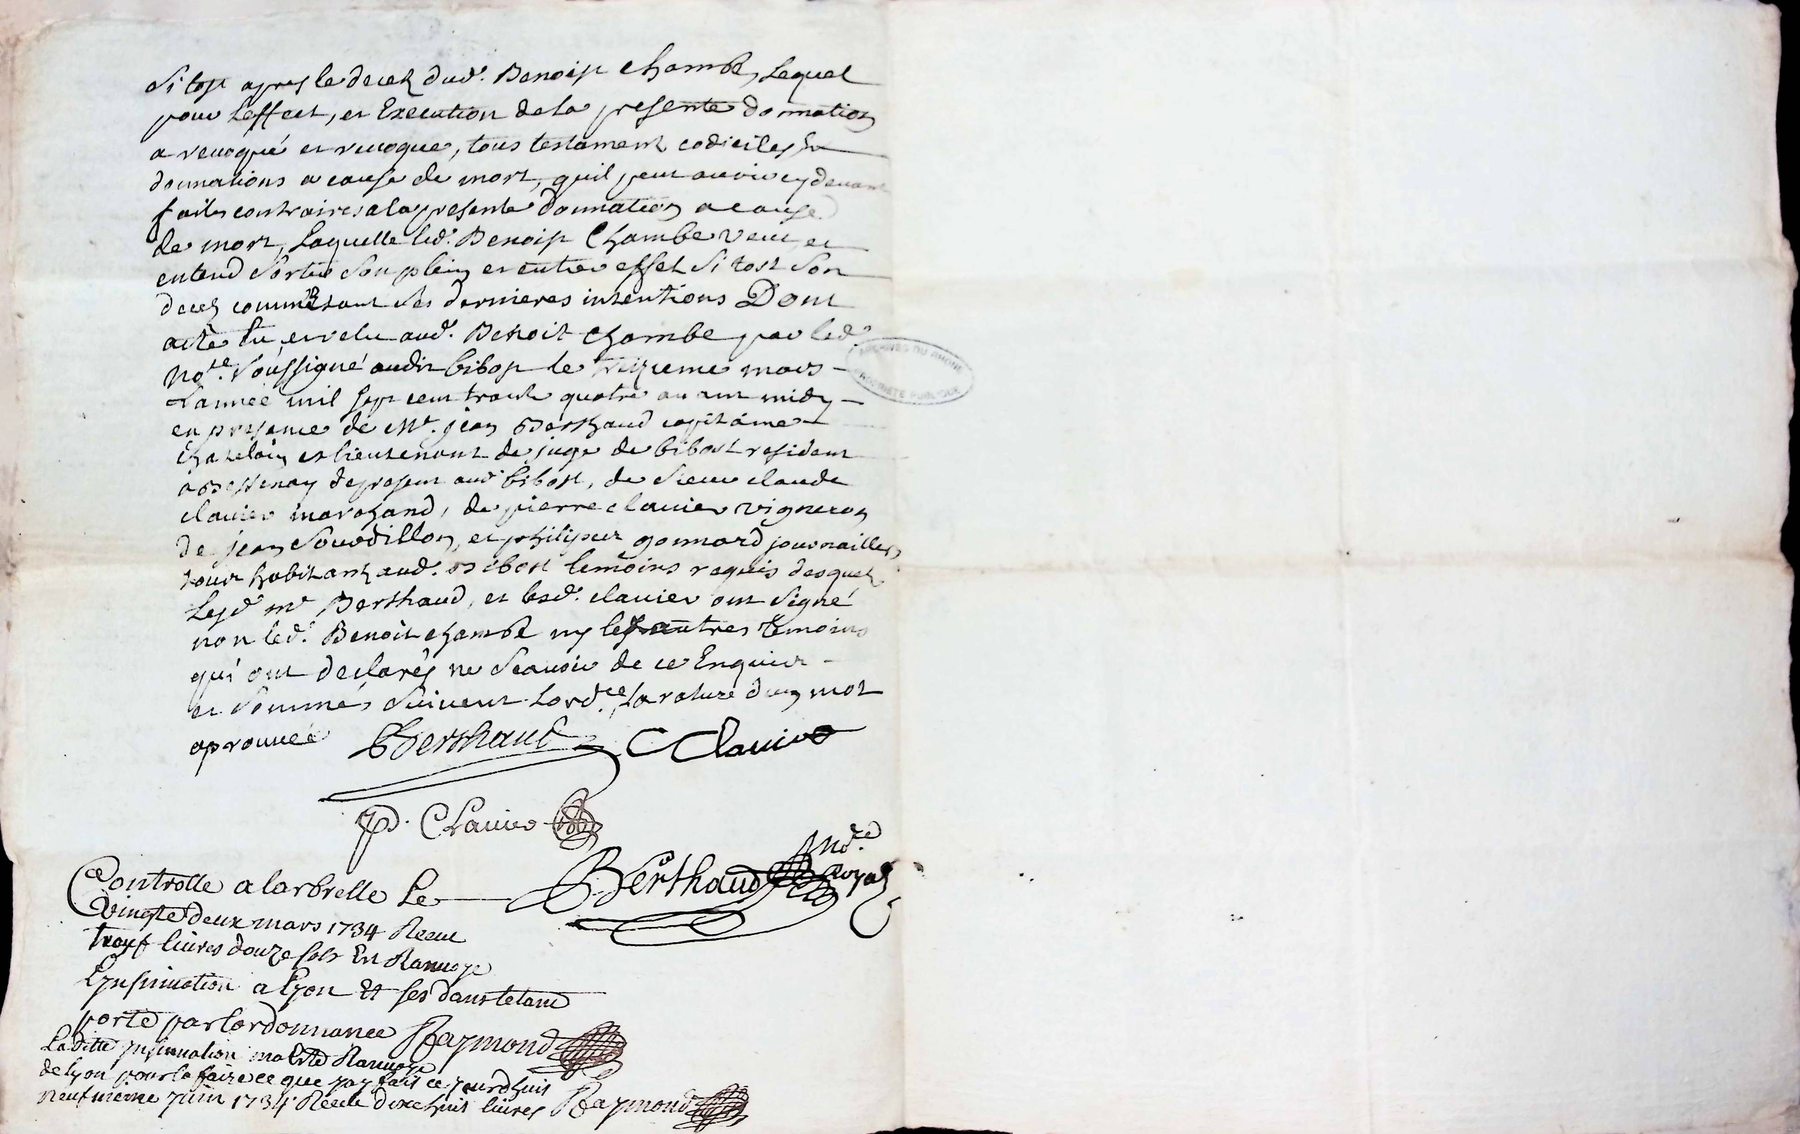 Si tost apres le decez dud. Benoist Chambe, Lequel
pour Leffect, et Execution de la presente donnation
a revoqué et revoque, tous testament codiciles &
donnations a cause de mort, quil peut avoir cy devant
faites contraires a la presente donnation a cause
de mort, Laquelle led. Benoist Chambe veut et
entend sortir son plein et entier effet si tost son
decez comme estant ses dernieres intentions Dont
acte lu, et relu aud. Benoit Chambe par led.
No.re soussigné audit bibost le treizieme mars
Lannée mil sept cent trente quatre avant midy
en presence de Mr. jean Berthaud capitaine
Chatelain et lieutenant de juge de bibost resident
a Bessenay de present aud. bibost, de Sieur claude
clavier marchand, de pierre clavier vigneron
de jean Sourdillon, et philipes gonnard journailler
tous habitants aud. Bibost temoins requis desquels
Lesd. mr Berthaud, et lesd. clavier ont signé
non led. Benoit chambe ny les autres temoins
qui ont declarés ne scavoir de ce Enquis
et sommés suivent Lord.ce, La rature dun mot
aprouvée Berthaud C Clavier
P. Clavier
Berthaud No.re Royal
Controlle a larbrelle Le
vingte deux mars 1734 Receu
trois livres douze sols En Renvoye
Lynsinuation a Lyon Et ses dans le tems
porté par Lordonnance Raymond
La ditte ynsinuation ma Esté Renvoye
de Lyon pour la faire ce que jay fait ce jourdhuis
neufvieme juin 1734 Receu dixe huit livres Raymond
ARCHIVES DU RHONE
PROPRIÉTÉ PUBLIQUE